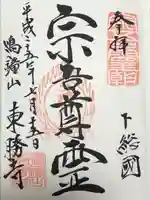 奉拝
下総國
宗吾尊霊
平成二十六年七月十五日
鳴鐘山
東勝寺